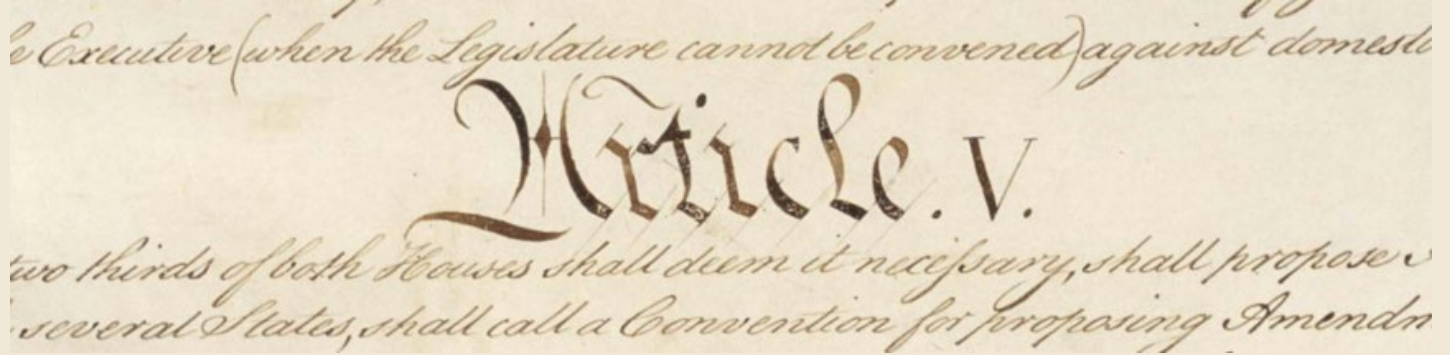 e Executive (when the Legislature cannot be convened) against domesti
Article. V.
two thirds of both Houses shall deem it neceſsary, shall propose
several States, shall call a Convention for proposing Amendm